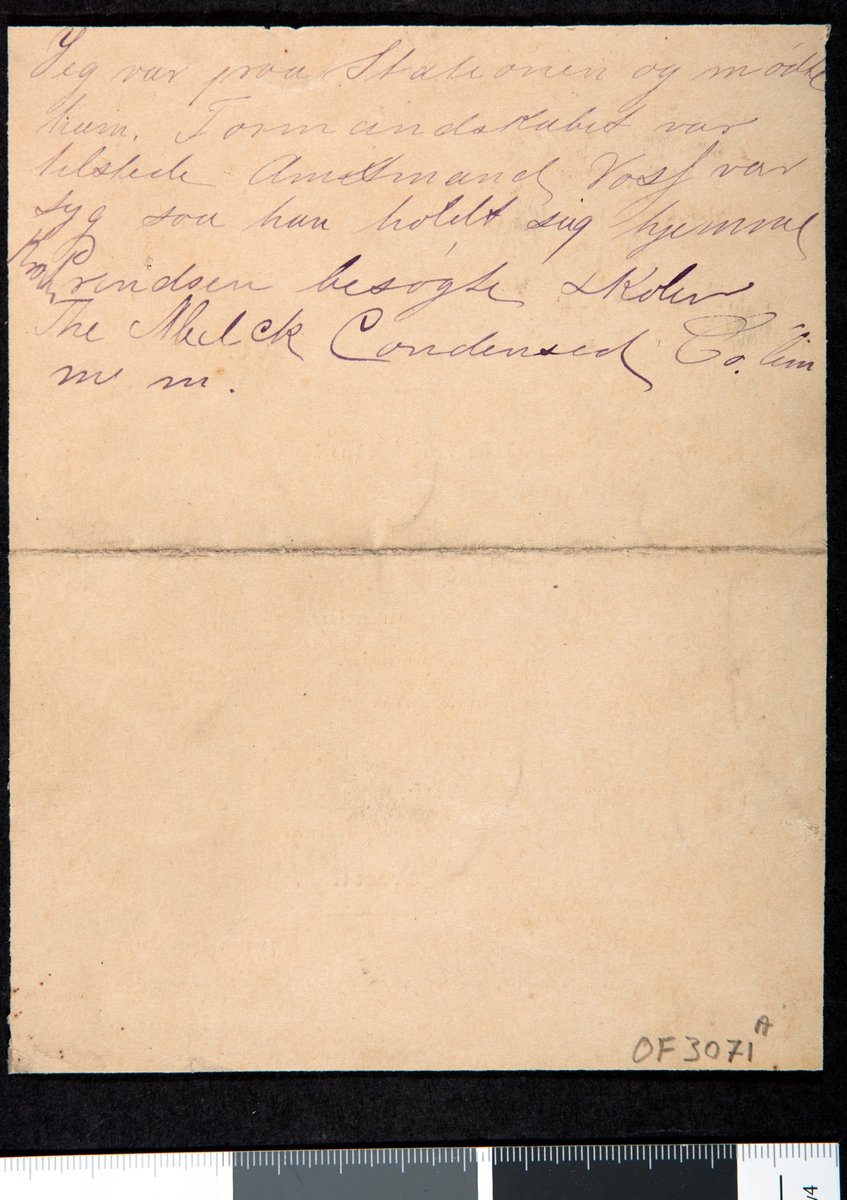 Jeg var paa Stationen og mødte
ham. Formandskabet var
tilstede Amtmand Vosf var
syg saa han holdt sig hjemme
Kron Prindsen besøgte skolen
The Melck Condensed Co. lim
m m.
OF 3071 A